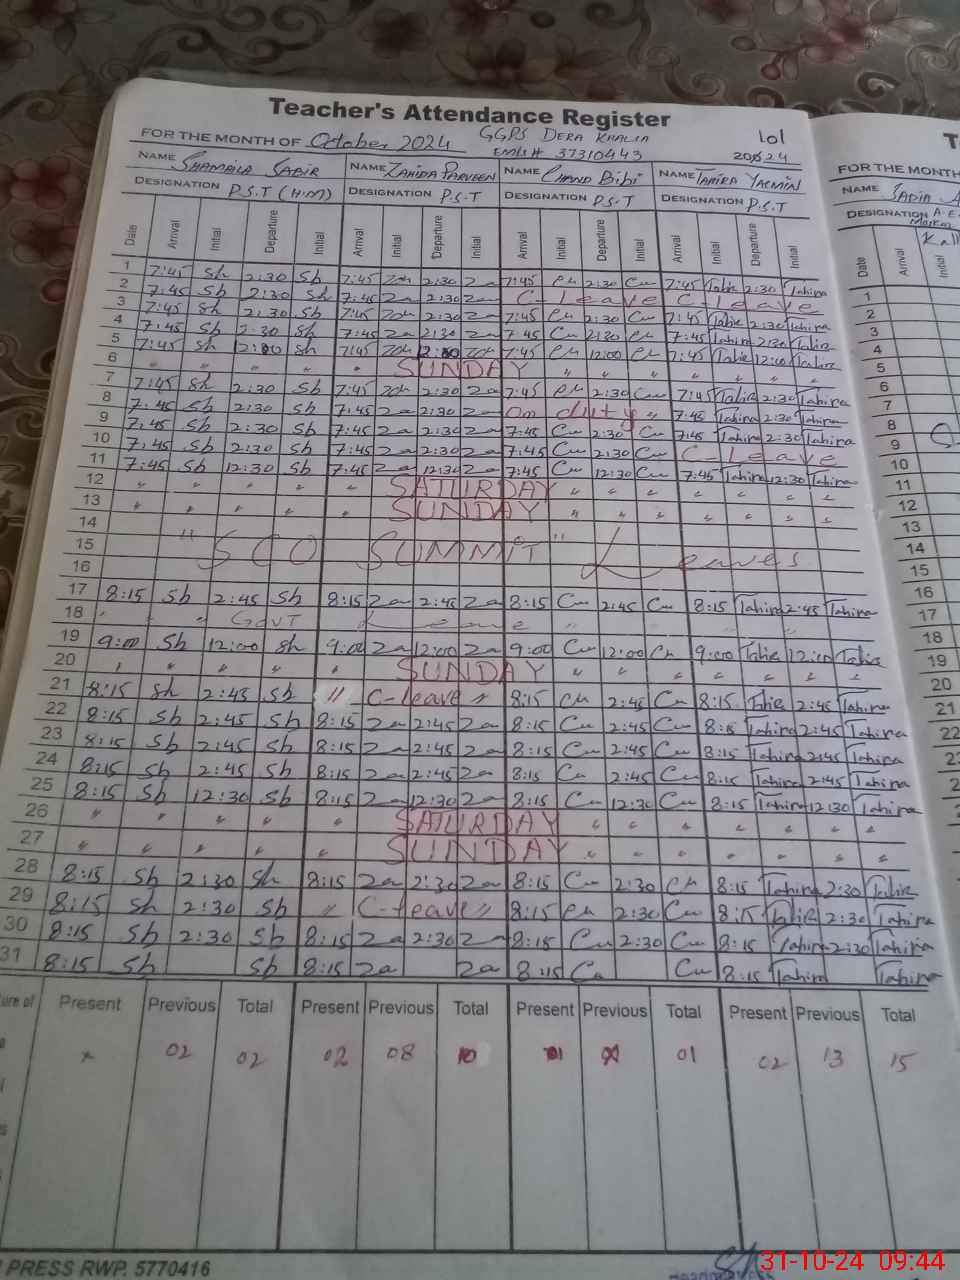 Teacher's Attendance Register
FOR THE MONTH OF October 2024 GGPS DERA KHALIA 101
EMIS# 37310443 2024
NAME SHAMAILA SABIR NAME ZAHIDA PARVEEN NAME CHAND BIBI NAME TAHIRA YASMIN
DESIGNATION P.S.T (H.M) DESIGNATION P.S.T DESIGNATION P.S.T DESIGNATION P.S.T
Date Arrival Initial Departure Initial Arrival Initial Departure Initial Arrival Initial Departure Initial Arrival Initial Departure Initial
1 7:45 Sh 2:30 Sb 7:45 Zah 2:30 Za 7:45 Ch 2:30 Cu 7:45 Tahir 2:30 Tahira
2 7:45 Sb 2:30 Sh 7:45 Za 2:30 Za C-Leave C-Leave
3 7:45 Sh 2:30 Sb 7:45 Zah 2:30 Za 7:45 Ch 2:30 Cu 7:45 Tahir 2:30 Tahira
4 7:45 Sb 2:30 Sh 7:45 Za 2:30 Za 7:45 Cu 2:30 Ch 7:45 Tahira 2:30 Tahir
5 7:45 Sh 12:00 Sh 7:45 Zah Zah 7:45 Ch 12:00 Ch 7:45 Tahir 12:00 Tahir
6 " " " " " SUNDAY " " " " " " "
7 7:45 Sh 2:30 Sb 7:45 Zah 2:30 Za 7:45 Ch 2:30 Cu 7:45 Tahir 2:30 Tahira
8 7:45 Sb 2:30 Sb 7:45 Za 2:30 Za On duty " 7:45 Tahira 2:30 Tahira
9 7:45 Sb 2:30 Sb 7:45 Za 2:30 Za 7:45 Cu 2:30 Cu 7:45 Tahira 2:30 Tahira
10 7:45 Sb 2:30 Sb 7:45 Za 2:30 Za 7:45 Cu 2:30 Cu C-Leave
11 7:45 Sb 12:30 Sb 7:45 Za 12:30 Za 7:45 Cu 12:30 Cu 7:45 Tahira 12:30 Tahira
12 " " " " " SATURDAY " " " " " " "
13 " " " " " SUNDAY " " " " " " "
14
15 "SCO SUMMIT" Leaves
16
17 8:15 Sb 2:45 Sb 8:15 Za 2:45 Za 8:15 Cu 2:45 Cu 8:15 Tahira 2:45 Tahira
18 " " Govt Leave " "
19 9:00 Sb 12:00 Sh 9:00 Za 12:00 Za 9:00 Cu 12:00 Ch 9:00 Tahir 12:00 Tahir
20 " " " " " SUNDAY " " " " " " "
21 8:15 Sh 2:45 Sb " C-leave " 8:15 Ch 2:45 Cu 8:15 Tahir 2:45 Tahira
22 8:15 Sb 2:45 Sb 8:15 Za 2:45 Za 8:15 Cu 2:45 Cu 8:15 Tahira 2:45 Tahira
23 8:15 Sb 2:45 Sb 8:15 Za 2:45 Za 8:15 Cu 2:45 Cu 8:15 Tahira 2:45 Tahira
24 8:15 Sb 2:45 Sb 8:15 Za 2:45 Za 8:15 Cu 2:45 Cu 8:15 Tahira 2:45 Tahira
25 8:15 Sb 12:30 Sb 8:15 Za 12:30 Za 8:15 Cu 12:30 Cu 8:15 Tahira 12:30 Tahira
26 " " " " " SATURDAY " " " " " " "
27 " " " " " SUNDAY " " " " " " "
28 8:15 Sb 2:30 Sh 8:15 Za 2:30 Za 8:15 Cu 2:30 Ch 8:15 Tahira 2:30 Tahir
29 8:15 Sh 2:30 Sb " C-leave " 8:15 Ch 2:30 Cu 8:15 Tahir 2:30 Tahira
30 8:15 Sb 2:30 Sb 8:15 Za 2:30 Za 8:15 Cu 2:30 Cu 8:15 Tahira 2:30 Tahira
31 8:15 Sb Sb 8:15 Za Za 8:15 Cu Cu 8:15 Tahira Tahira
Present Previous Total Present Previous Total Present Previous Total Present Previous Total
× 02 02 02 08 10 01 × 01 02 13 15
PRESS RWP. 5770416
FOR THE MONTH
NAME SADIA
DESIGNATION A.E.
Date Arrival Initial
1
2
3
4
5
6
7
8
9
10
11
12
13
14
15
16
17
18
19
20
21
22
31-10-24 09:44